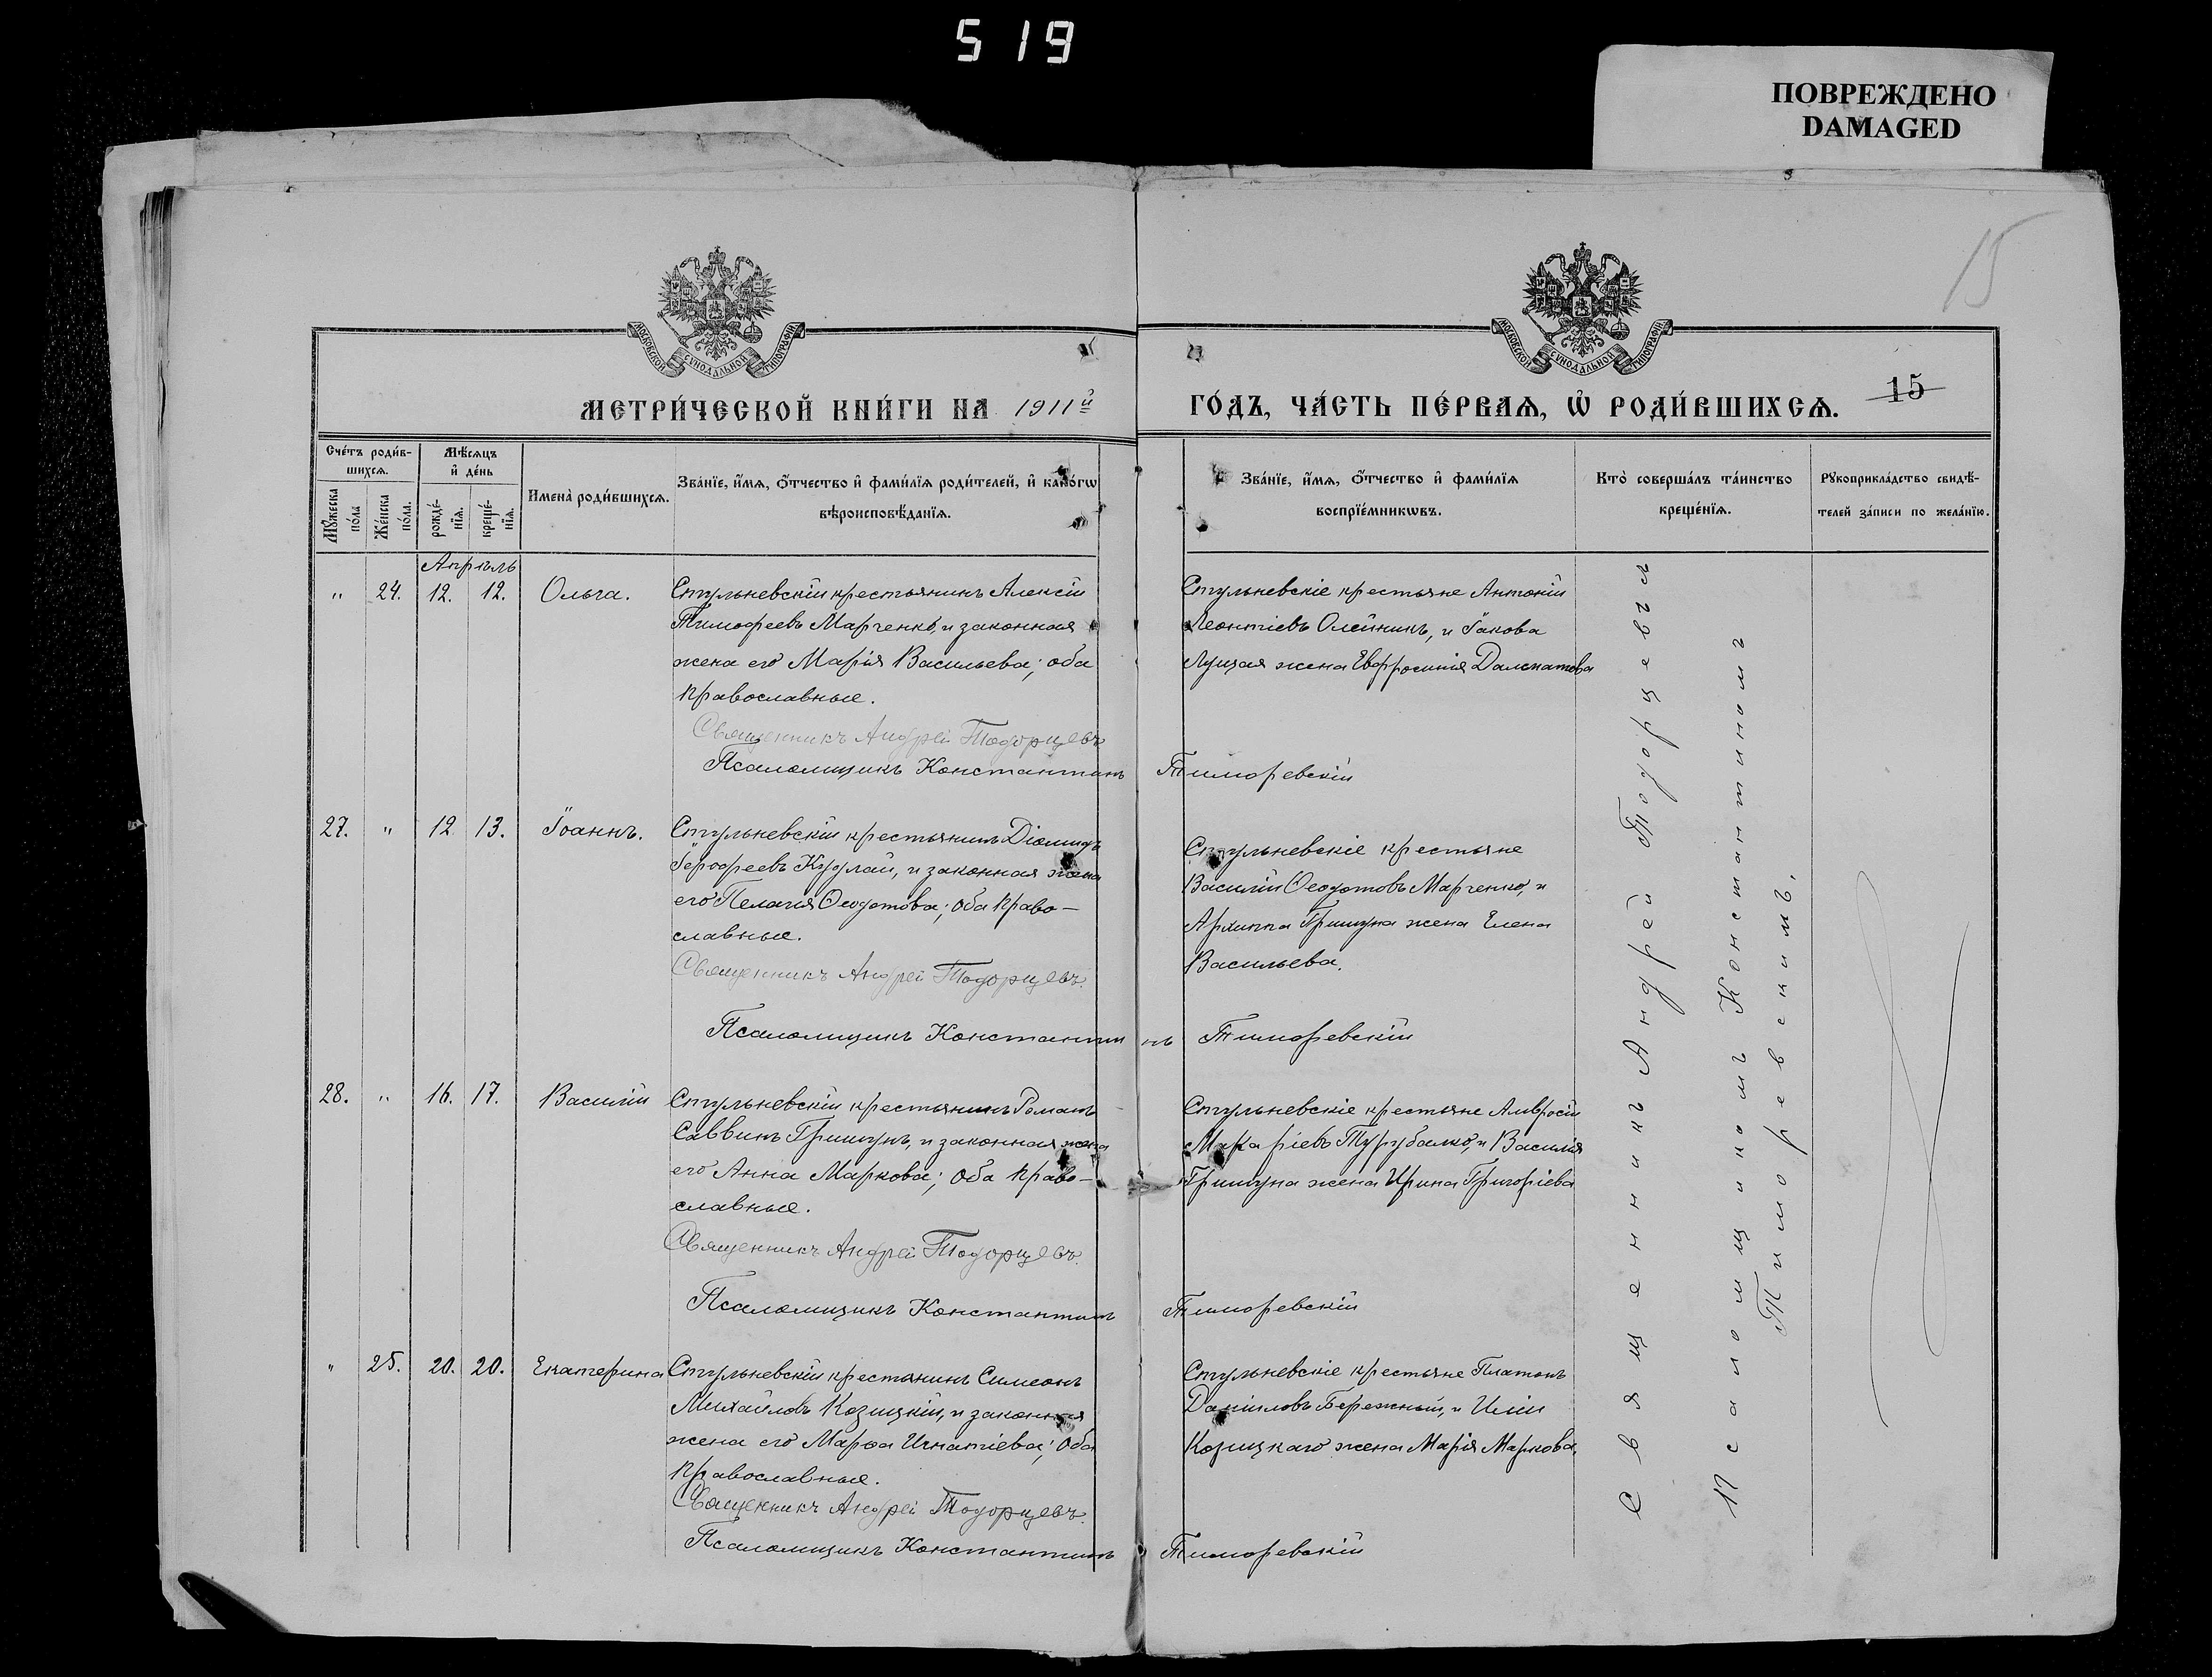 519
ПОВРЕЖДЕНО
DAMAGED
15
МОСКОВСКОЙ СѴНОДАЛЬНОЙ ТИПОГРАФІИ
МОСКОВСКОЙ СѴНОДАЛЬНОЙ ТИПОГРАФІИ
МЕТРИ́ЧЕСКОЙ КНИ́ГИ НА 1911й
ГО́ДЪ, ЧА́СТЬ ПЕ́РВАѦ, Ѽ РОДИ́ВШИХСѦ. 15
Сче́тъ роди́в-
шихсѧ.
Мꙋ́жеска
по́ла
Же́нска
по́ла.
Мѣ́сѧцъ
и҆ де́нь
рожде́-
нїѧ.
креще́-
нїѧ.
Имена̀ роди́вшихсѧ.
Зва́нїе, и҆́мѧ, ѻ҆́тчество и҆ фами́лїѧ роди́телей, и҆ како́гѡ
вѣроисповѣ́данїѧ.
Зва́нїе, и҆́мѧ, ѻ҆́тчество и҆ фами́лїѧ
воспрїе́мникѡвъ.
Кто̀ соверша́лъ та́инство
креще́нїѧ.
Рꙋкоприкла́дство свидѣ́-
телей за́писи по жела́нїю.
Апрѣль
" 24. 12. 12. Ольга.
Стульневскій крестьянинъ Алексій
Тимофеевъ Марченко, и законная
жена его Марія Васильева; оба
православные.
Священникъ Андрей Тодорцевъ
Псаломщикъ Константинъ Тиморевскій
Стульневскіе крестьяне Антоній
Леонтіевъ Олейникъ, и Іакова
Луцая жена Евфросинія Далматова
27. " 12 13. Іоаннъ.
Стульневскій крестьянинъ Діомидъ
Іерофеевъ Кудлай, и законная жена
его Пелагія Ѳеодотова; оба право-
славные.
Священникъ Андрей Тодорцевъ.
Псаломщикъ Константинъ Тиморевскій
Стульневскіе крестьяне
Василій Ѳеодотовъ Марченко, и
Архиппа Гришуна жена Елена
Васильева.
28. " 16. 17. Василій
Стульневскій крестьянинъ Романъ
Саввинъ Гришунъ, и законная жена
его Анна Маркова; оба право-
славные.
Священникъ Андрей Тодорцевъ.
Псаломщикъ Константинъ Тиморевскій
Стульневскіе крестьяне Амвросій
Макаріевъ Турубалко, и Василія
Гришуна жена Ирина Григоріева
" 25. 20. 20. Екатерина
Стульневскій крестьянинъ Симеонъ
Михайловъ Козицкій, и законная
жена его Марѳа Игнатіева; оба
православные.
Священникъ Андрей Тодорцевъ.
Псаломщикъ Константинъ Тиморевскій
Стульневскіе крестьяне Платонъ
Даніиловъ Бережный, и Иліи
Козицкаго жена Марія Маркова.
Священникъ Андрей Тодорцевъ
Псаломщикомъ Константиномъ
Тиморевскимъ.